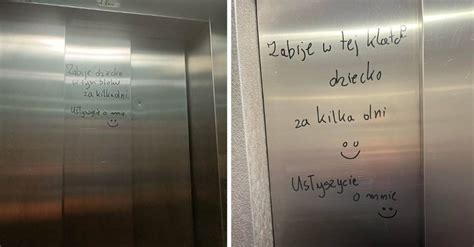 Zabije dziecko
w tym bloku
za kilka dni
Usłyszycie o mnie
Zabije w tej klatce
dziecko
za kilka dni
Usłyszycie
o mnie